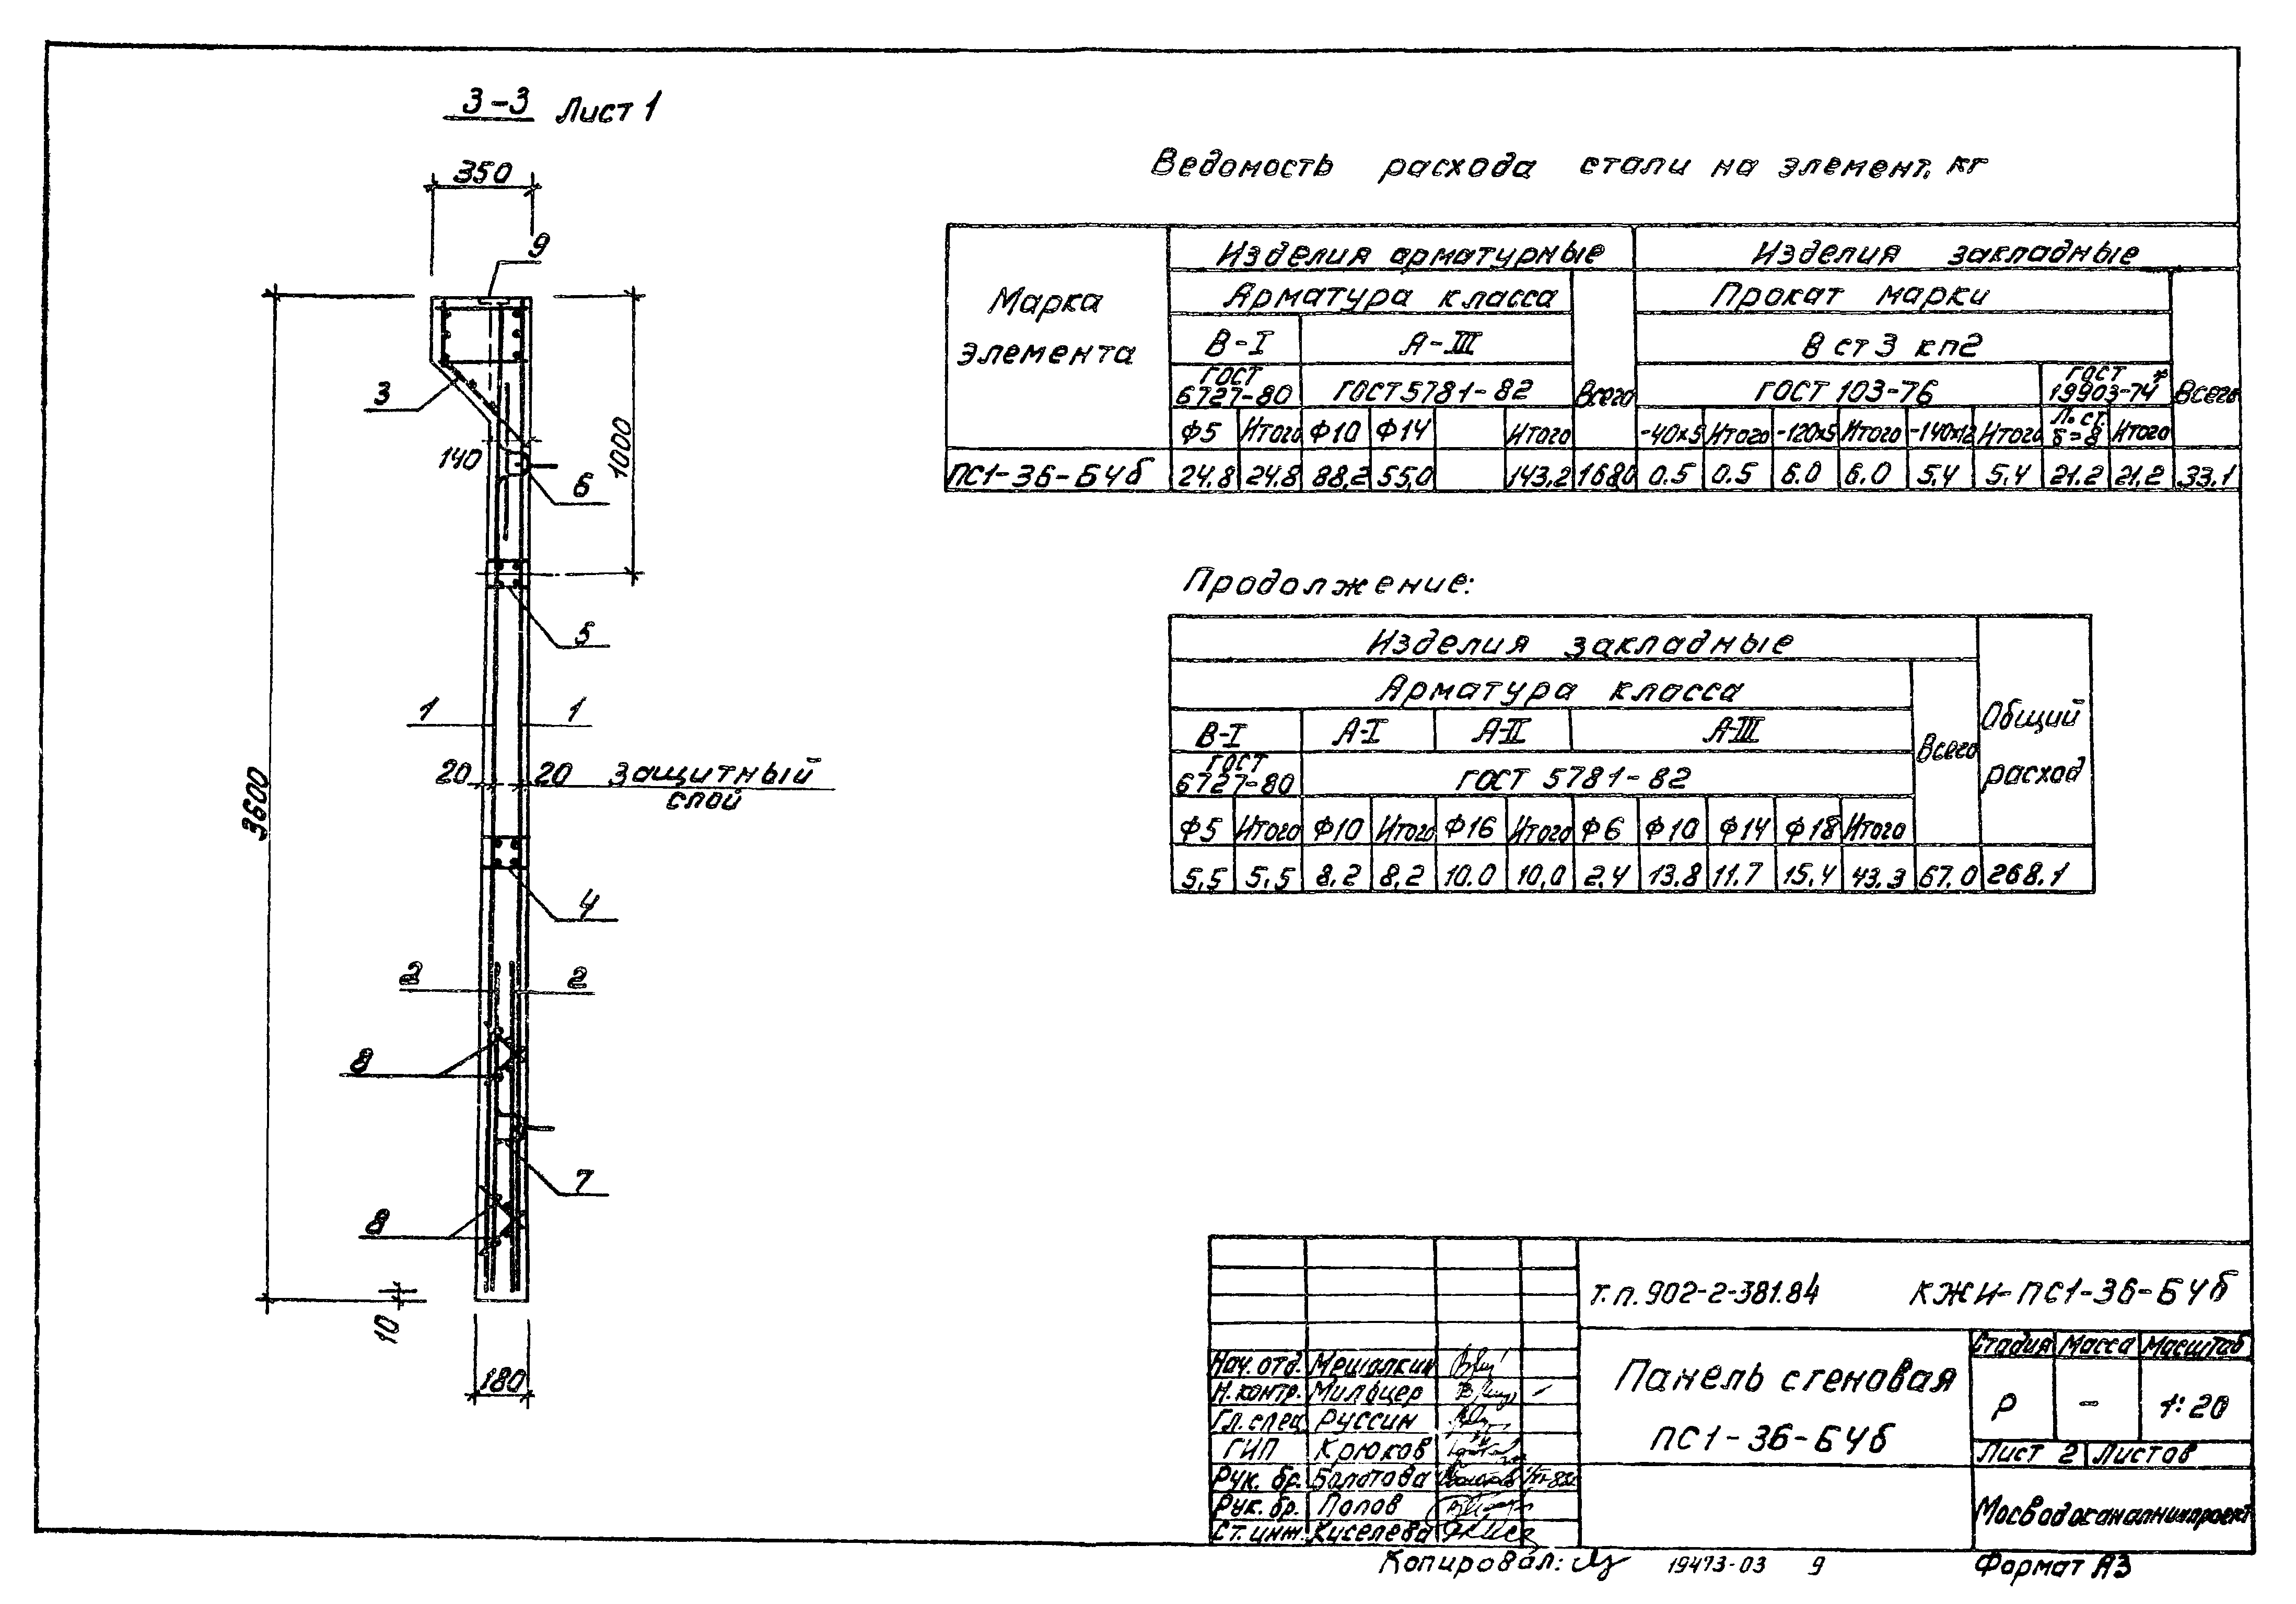 3-3 Лист 1
350
9
3
140
1000
6
5
1 1
20 20 Защитный
слой
3600
4
2 2
8
7
8
10
180
Ведомость расхода стали на элемент, кг
Марка элемента
Изделия арматурные Изделия закладные
Арматура класса Всего Прокат марки Всего
В-I А-III В ст3 кп2
ГОСТ 6727-80 ГОСТ 5781-82 ГОСТ 103-76 ГОСТ 19903-74*
Ф5 Итого Ф10 Ф14 Итого -40х5 Итого -120х5 Итого -140х12 Итого Лист δ=8 Итого
ПС1-36-Б4б 24.8 24.8 88,2 55,0 143,2 168,0 0.5 0.5 6.0 6.0 5,4 5,4 21.2 21,2 33.1
Продолжение:
Изделия закладные Общий расход
Арматура класса Всего
В-I А-I А-II А-III
ГОСТ 6727-80 ГОСТ 5781-82
Ф5 Итого Ф10 Итого Ф16 Итого Ф6 Ф10 Ф14 Ф18 Итого
5,5 5,5 8,2 8,2 10.0 10,0 2,4 13.8 11.7 15,4 43.3 67.0 268.1
т.п. 902-2-381.84 КЖИ-ПС1-36-Б4б
Панель стеновая
ПС1-36-Б4б
Стадия Масса Масштаб
Р - 1:20
Лист 2 Листов
Мосводоканалниипроект
Нач. отд. Мешалкин
Н. контр. Мильцер
Гл. спец. Руссин
ГИП Крюков
Рук. бр. Болотова
Рук. бр. Попов
Ст. инж. Киселева
Копировал: 19473-03 9 Формат А3